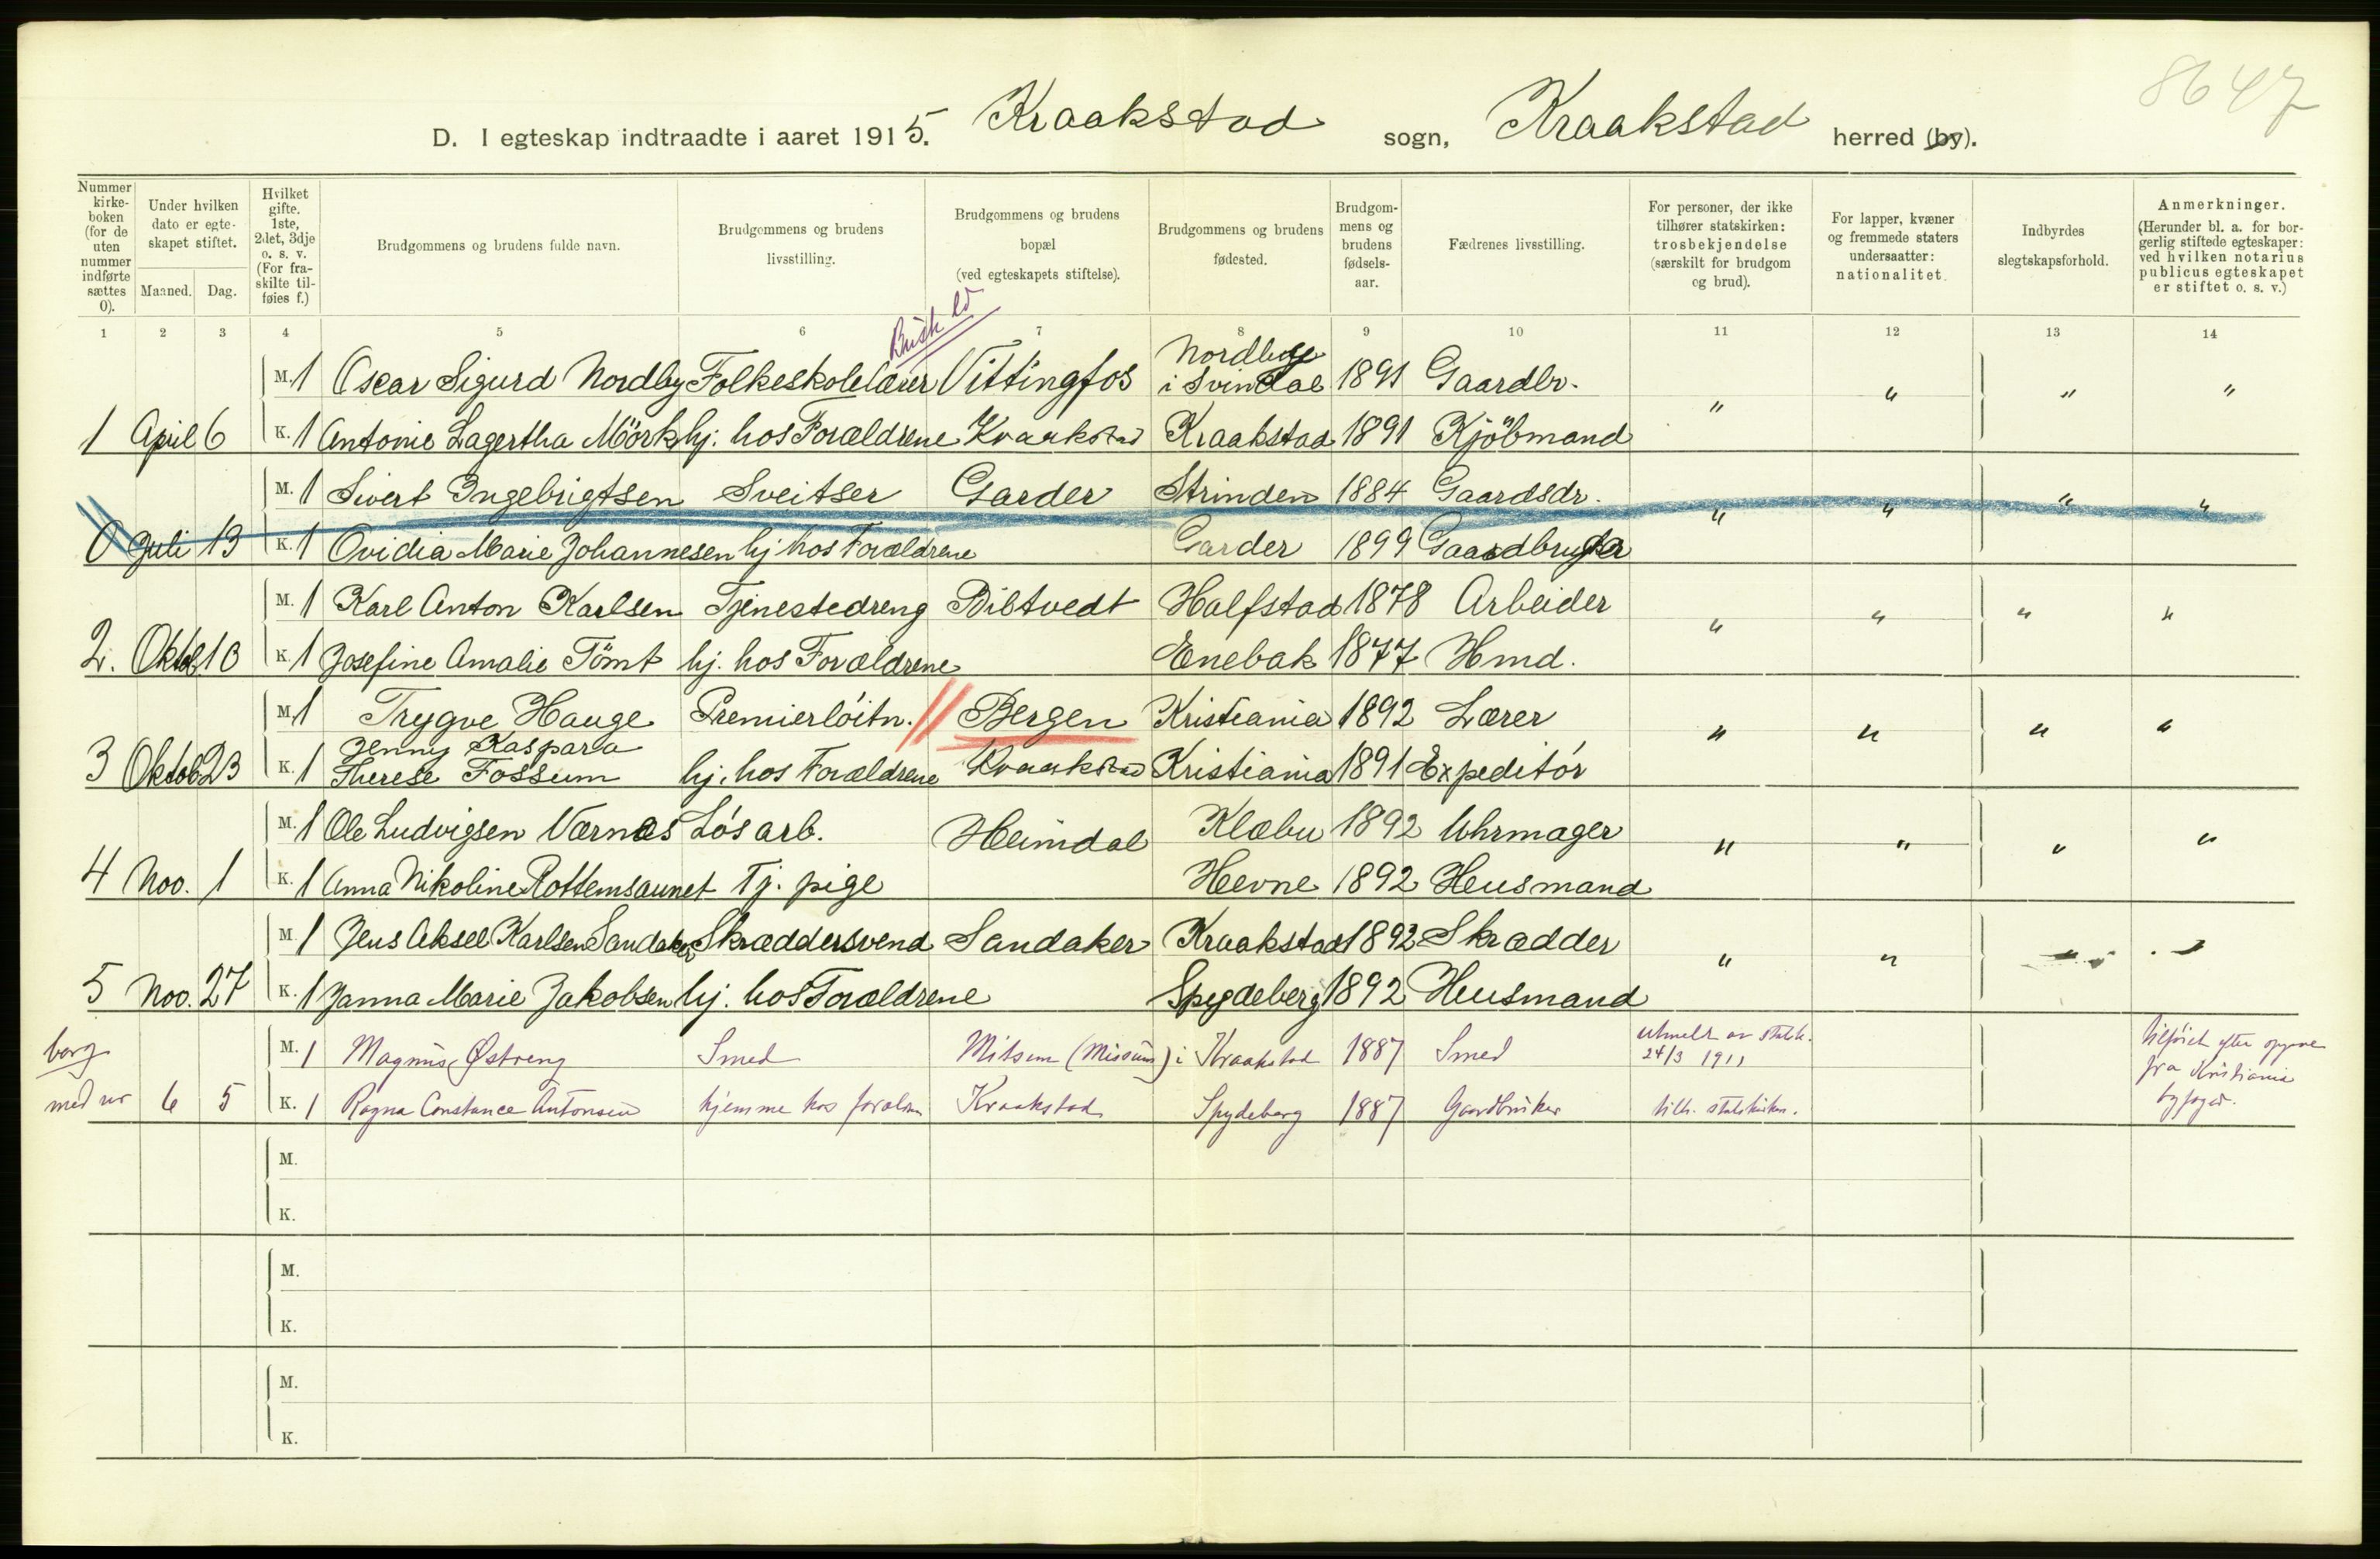 8647
D. I egteskap indtraadte i aaret 1915. Kraakstad sogn, Kraakstad herred (by).
Nummer kirke-boken (for de uten nummer indførte sættes 0).
Under hvilken dato er egte-skapet stiftet.
Maaned. Dag.
Hvilket gifte. 1ste, 2det, 3dje o. s. v. (For fra-skilte til-føies f.)
Brudgommens og brudens fulde navn.
Brudgommens og brudens livsstilling.
Brudgommens og brudens bopæl (ved egteskapets stiftelse).
Brudgommens og brudens fødested.
Brudgom-mens og brudens fødsels-aar.
Fædrenes livsstilling.
For personer, der ikke tilhører statskirken: trosbekjendelse (særskilt for brudgom og brud).
For lapper, kvæner og fremmede staters undersaatter: nationalitet.
Indbyrdes slegtskapsforhold.
Anmerkninger. (Herunder bl. a. for bor-gerlig stiftede egteskaper: ved hvilken notarius publicus egteskapet er stiftet o. s. v.)
1 2 3 4 5 6 7 8 9 10 11 12 13 14
M. 1 Oscar Sigurd Nordby Folkeskolelærer Vittingfos Nordbye i Svindal 1891 Gaardbr. " " " "
1 April 6 K. 1 Antonie Lagertha Mörk hj. hos Forældrene Kraakstad Kraakstad 1891 Kjöbmand
M. 1 Sivert Ingebrigtsen Sveitser Garder Strinden 1884 Gaardsdr. " " " "
0 Juli 13 K. 1 Ovidia Marie Johannesen hj hos Forældrene Garder 1899 Gaardbruger
M. 1 Karl Anton Karlsen Tjenestedreng Biltvedt Halfstad 1878 Arbeider " " " "
2. Oktob. 10 K. 1 Josefine Amalie Tömt hj. hos Forældrene Enebak 1877 Hmd.
M. 1 Trygve Hauge Premierlöitn. // Bergen Kristiania 1892 Lærer " " " "
3 Oktob 23 K. 1 Jenny Kaspara Therese Fossum hj. hos Forældrene Kraakstad Kristiania 1891 Expeditör
M. 1 Ole Ludvigsen Værnes Lös arb. Heimdal Klæbu 1892 Uhrmager " " " "
4 Nov. 1 K. 1 Anna Nikoline Rottemsaunet Tj. pige Hevne 1892 Husmand
M. 1 Jens Aksel Karlsen Sandaker Skræddersvend Sandaker Kraakstad 1892 Skrædder " "
5 Nov. 27 K. 1 Janna Marie Jakobsen hj. hos Forældrene Spydeberg 1892 Husmand
borg. M. 1 Magnus Østreng Smed Mitsum (Missum) i Kraakstad 1887 Smed utmeldt av statsk. 24/3 1911 tilföiet efter opgave fra Kristiania byfoged.
med nr 6 5 K. 1 Ragna Constance Antonsen hjemme hos foreldr. Kraakstad Spydeberg 1887 Gaardbruker tilh. statskirken.
M.
K.
M.
K.
M.
K.